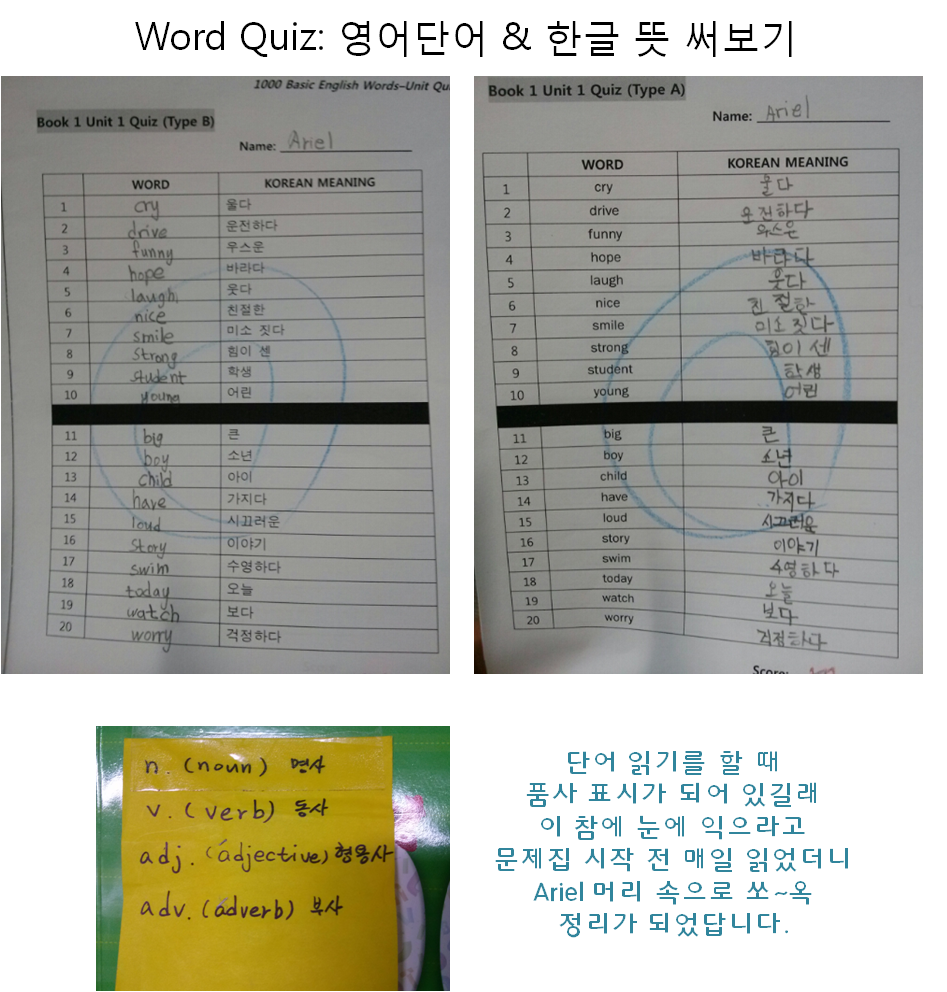 Word Quiz: 영어단어 & 한글 뜻 써보기
1000 Basic English Words–Unit Qu
Book 1 Unit 1 Quiz (Type B)
Name: Ariel
WORD KOREAN MEANING
1 cry 울다
2 drive 운전하다
3 funny 우스운
4 hope 바라다
5 laugh 웃다
6 nice 친절한
7 smile 미소 짓다
8 strong 힘이 센
9 student 학생
10 young 어린
11 big 큰
12 boy 소년
13 child 아이
14 have 가지다
15 loud 시끄러운
16 story 이야기
17 swim 수영하다
18 today 오늘
19 watch 보다
20 worry 걱정하다
Book 1 Unit 1 Quiz (Type A)
Name: Ariel
WORD KOREAN MEANING
1 cry 울다
2 drive 운전하다
3 funny 우스운
4 hope 바라다
5 laugh 웃다
6 nice 친절한
7 smile 미소짓다
8 strong 힘이 센
9 student 학생
10 young 어린
11 big 큰
12 boy 소년
13 child 아이
14 have 가지다
15 loud 시끄러운
16 story 이야기
17 swim 수영하다
18 today 오늘
19 watch 보다
20 worry 걱정하다
Score:
n. (noun) 명사
v. (verb) 동사
adj. (ádjective) 형용사
adv. (ádverb) 부사
단어 읽기를 할 때
품사 표시가 되어 있길래
이 참에 눈에 익으라고
문제집 시작 전 매일 읽었더니
Ariel 머리 속으로 쏘~옥
정리가 되었답니다.